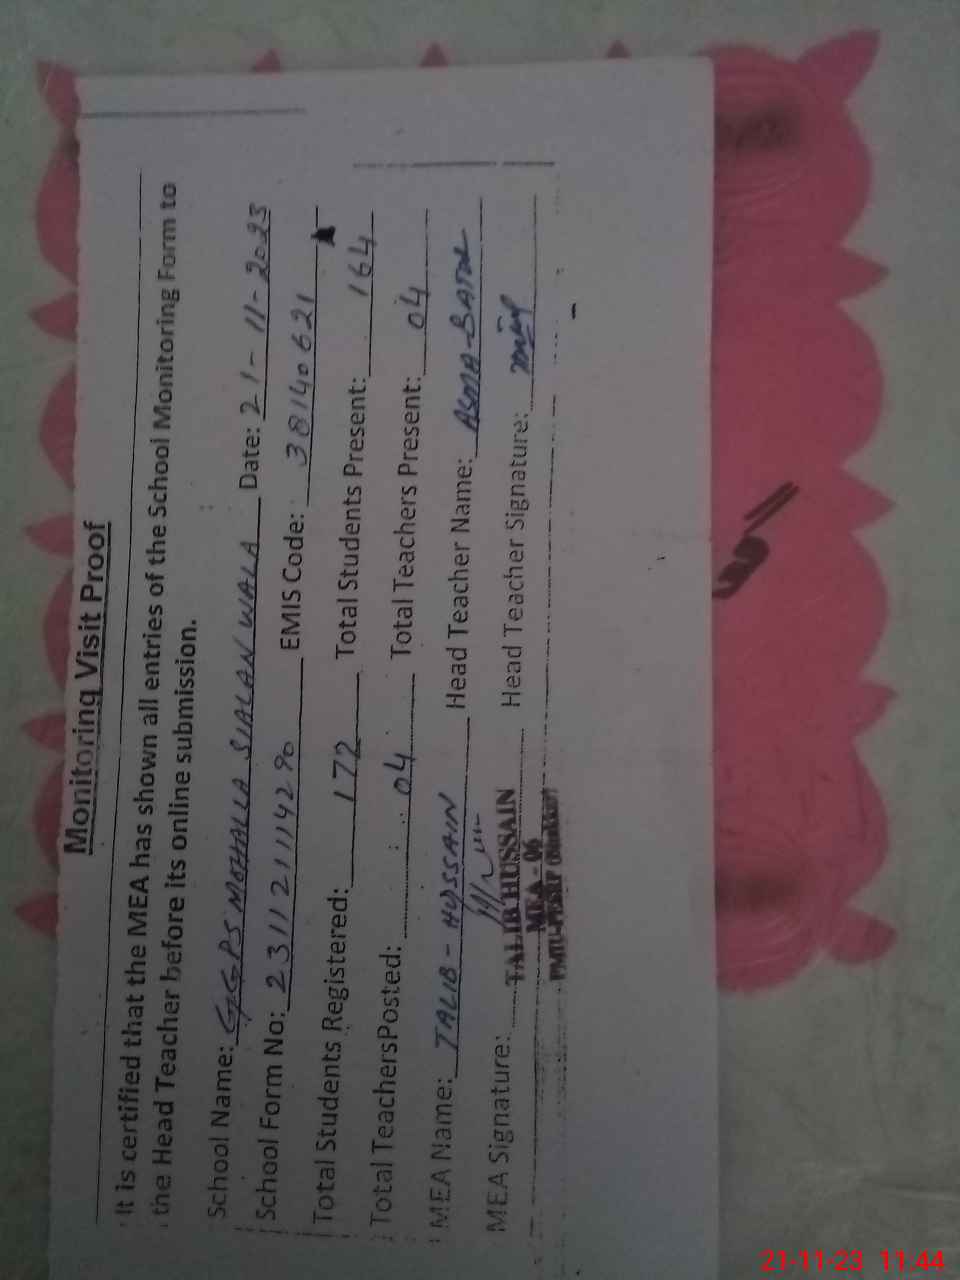 Monitoring Visit Proof
It is certified that the MEA has shown all entries of the School Monitoring Form to
the Head Teacher before its online submission.
School Name: GGPS MOHALLA SIALAN WALA Date: 21-11-2023
School Form No: 2311211114290 EMIS Code: 38140621
Total Students Registered: 172 Total Students Present: 164
Total TeachersPosted: 04 Total Teachers Present: 04
MEA Name: TALIB-HUSSAIN Head Teacher Name: ASMA-BATOL
MEA Signature: Head Teacher Signature:
TALIB HUSSAIN
MEA - 06
21-11-23 11:44